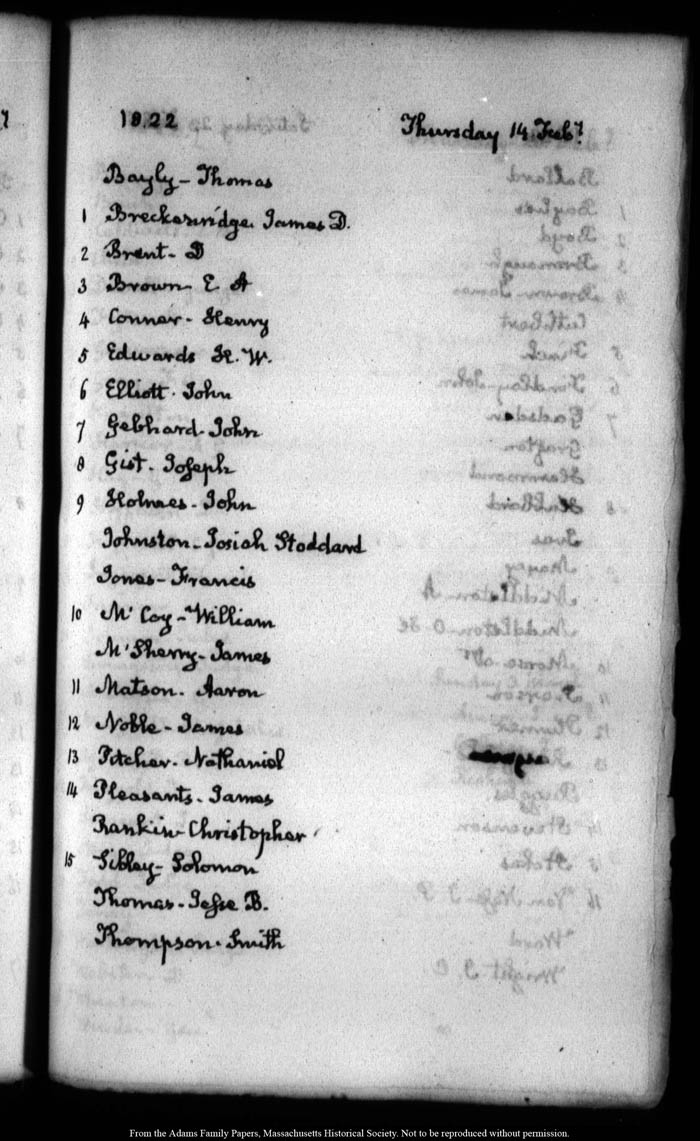 1822 Thursday 14 Feby.
Bayly - Thomas
1 Breckenridge James D.
2 Brent - D
3 Brown E A
4 Conner - Henry
5 Edwards H. W.
6 Elliott - John
7 Gebhard - John
8 Gist - Joseph
9 Holmes - John
Johnston - Josiah Stoddard
Jones - Francis
10 Mc Coy - William
Mc Sherry - James
11 Matson - Aaron
12 Noble - James
13 Pitcher - Nathaniel
14 Pleasants - James
Rankin Christopher
15 Sibley - Solomon
Thomas - Jesse B.
Thompson - Smith
From the Adams Family Papers, Massachusetts Historical Society. Not to be reproduced without permission.